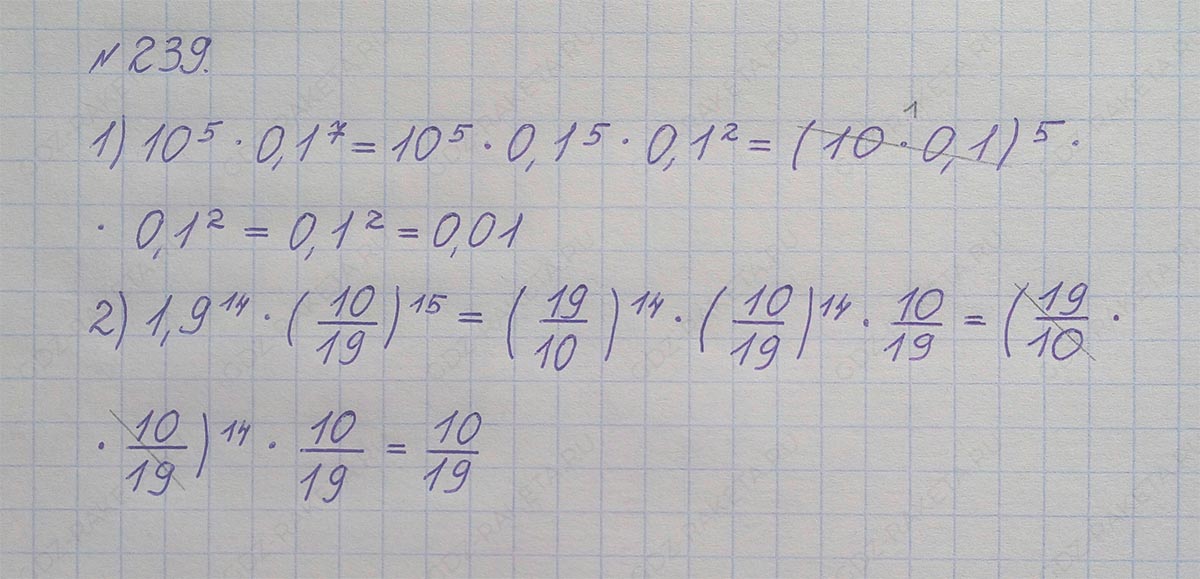 №239.
1) 10⁵ · 0,1⁷ = 10⁵ · 0,1⁵ · 0,1² = (10 · 0,1)⁵ ·
1
· 0,1² = 0,1² = 0,01
2) 1,9¹⁴ · (10/19)¹⁵ = (19/10)¹⁴ · (10/19)¹⁴ · 10/19 = (19/10 ·
· 10/19)¹⁴ · 10/19 = 10/19
GDZ-RAKETA.RU